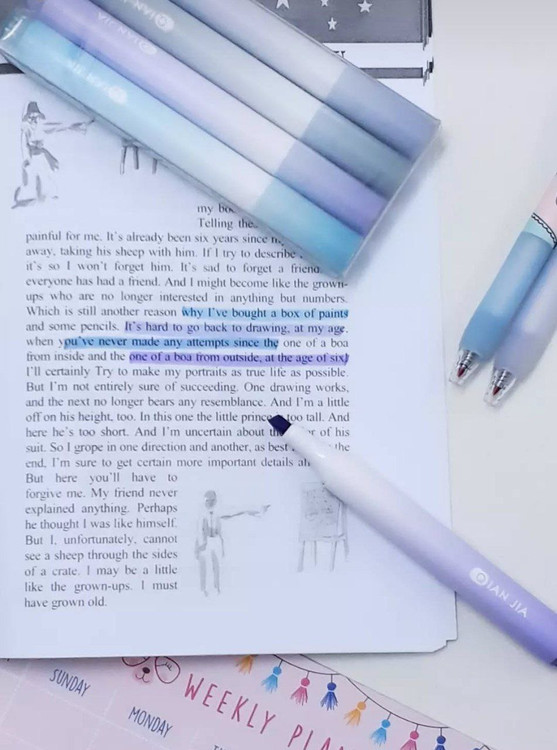 my
Telling
painful for me. It's already been six years since
away, taking his sheep with him. If I try to describe
it's so I won't forget him. It's sad to forget a friend
everyone has had a friend. And I might become like the grown-
ups who are no longer interested in anything but numbers.
Which is still another reason why I've bought a box of paints
and some pencils. It's hard to go back to drawing, at my age,
when you've never made any attempts since the one of a boa
from inside and the one of a boa from outside, at the age of six!
I'll certainly Try to make my portraits as true life as possible.
But I'm not entirely sure of succeeding. One drawing works,
and the next no longer bears any resemblance. And I'm a little
off on his height, too. In this one the little prince too tall. And
here he's too short. And I'm uncertain about of his
suit. So I grope in one direction and another, as best the
end, I'm sure to get certain more important details
But here you'll have to
forgive me. My friend never
explained anything. Perhaps
he thought I was like himself.
But I, unfortunately, cannot
see a sheep through the sides
of a crate. I may be a little
like the grown-ups. I must
have grown old.
QIAN JIA
SUNDAY
MONDAY
WEEKLY